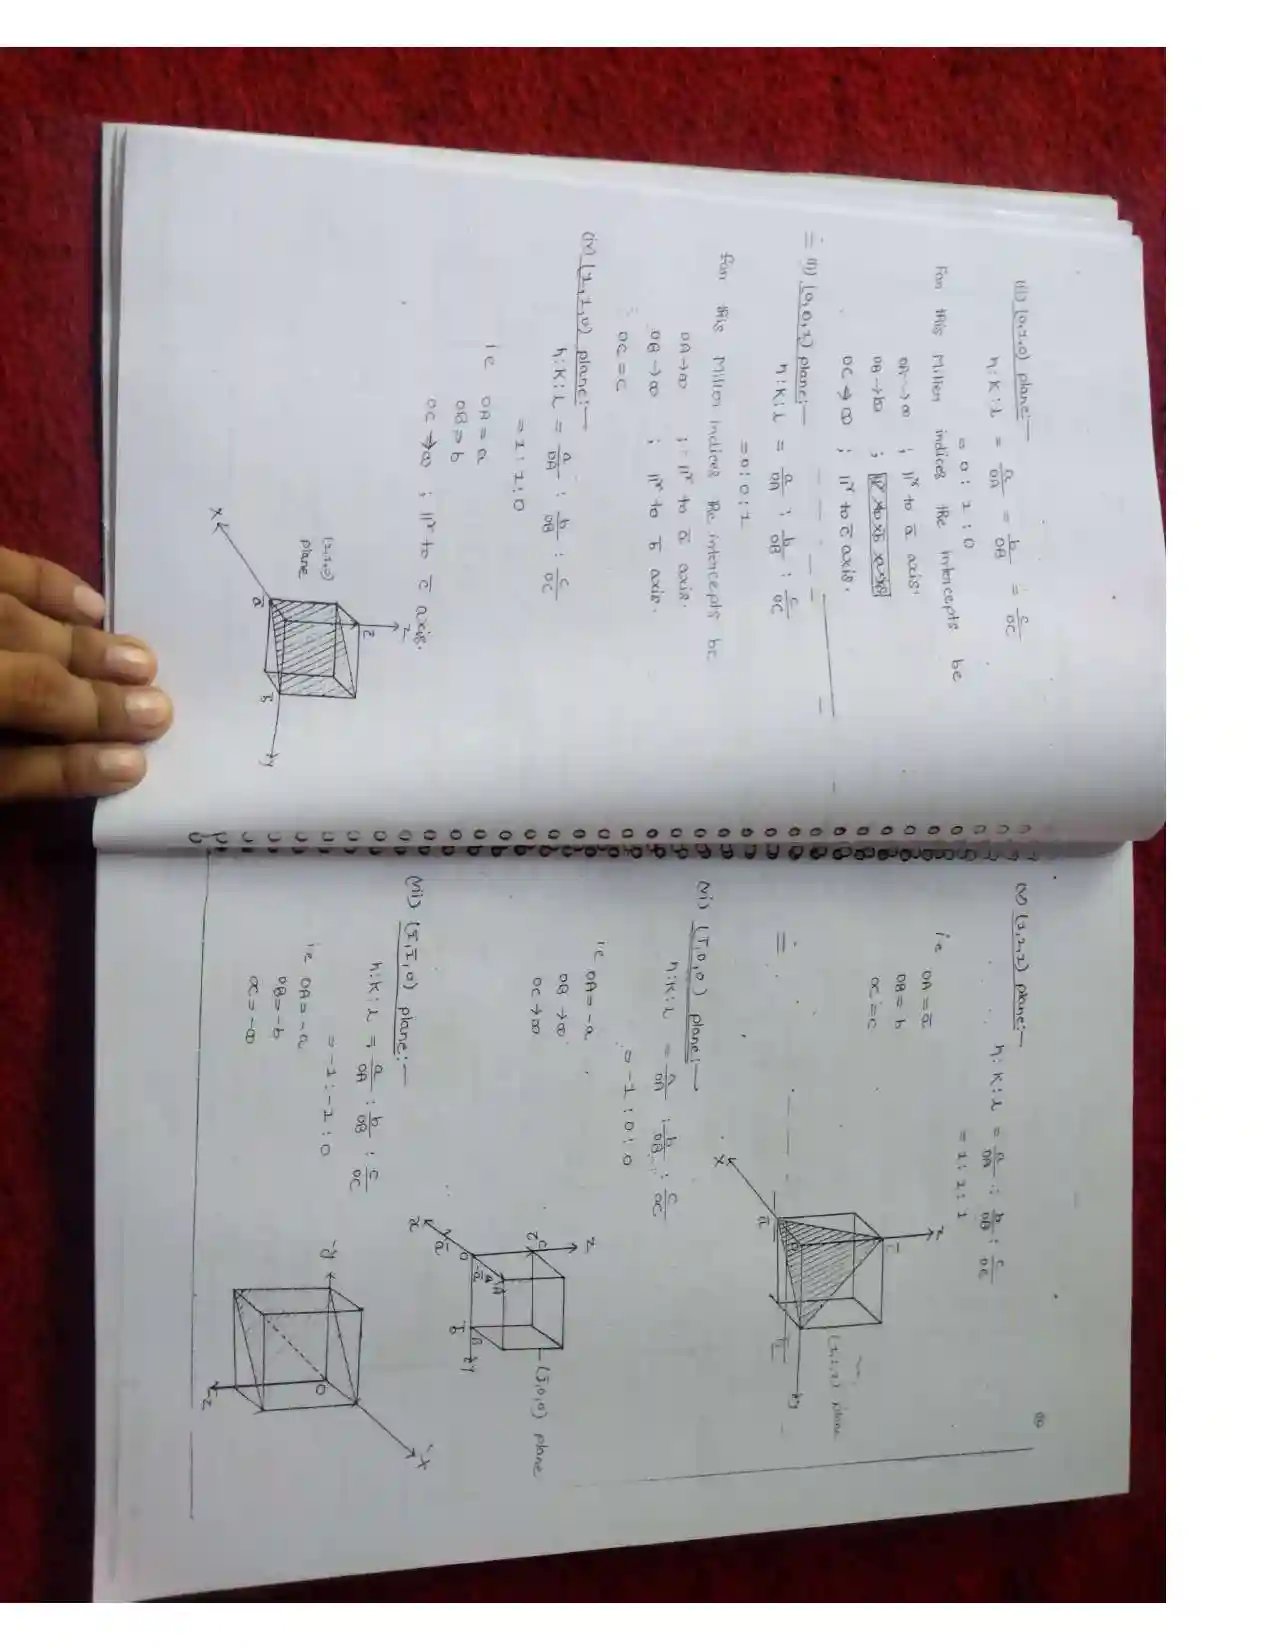 (ii) (0,1,0) plane:—
h:K:l = a/OA = b/OB = c/OC
= 0:1:0
For this Miller indices the intercepts be
OA→∞ ; 11r to a̅ axis.
OB→b ;
OC→∞ ; 11r to c̅ axis.
(0,0,1) plane:—
h:K:l = a/OA : b/OB : c/OC
= 0:0:1
For this Miller indices the intercepts be
OA→∞ ; 11r to a̅ axis.
OB→∞ ; 11r to b̅ axis.
OC=c
(iv) (1,1,0) plane:—
h:K:l = a/OA : b/OB : c/OC
= 1:1:0
ie OA=a
OB=b
OC→∞ ; 11r to c̅ axis.
Z
c̅
(1,1,0)
plane
a̅
b̅
X
Y
(v) (1,1,1) plane:—
h:K:l = a/OA : b/OB : c/OC
= 1:1:1
ie OA=a̅
OB=b
OC=c
Z
c̅
(1,1,1) plane
O
a̅
b̅
X
Y
(vi) (1̅,0,0) plane:—
h:K:l = a/OA : b/OB : c/OC
= -1:0:0
ie OA=-a
OB→∞
OC→∞
Z
C
c̅
(1̅,0,0) plane
A
-a̅
O
B
a̅
b̅
X
Y
(vii) (1̅,1̅,0) plane:—
h:K:l = a/OA : b/OB : c/OC
= -1:-1:0
ie OA=-a
OB=-b
OC=-∞
-X
-Y
O
Z